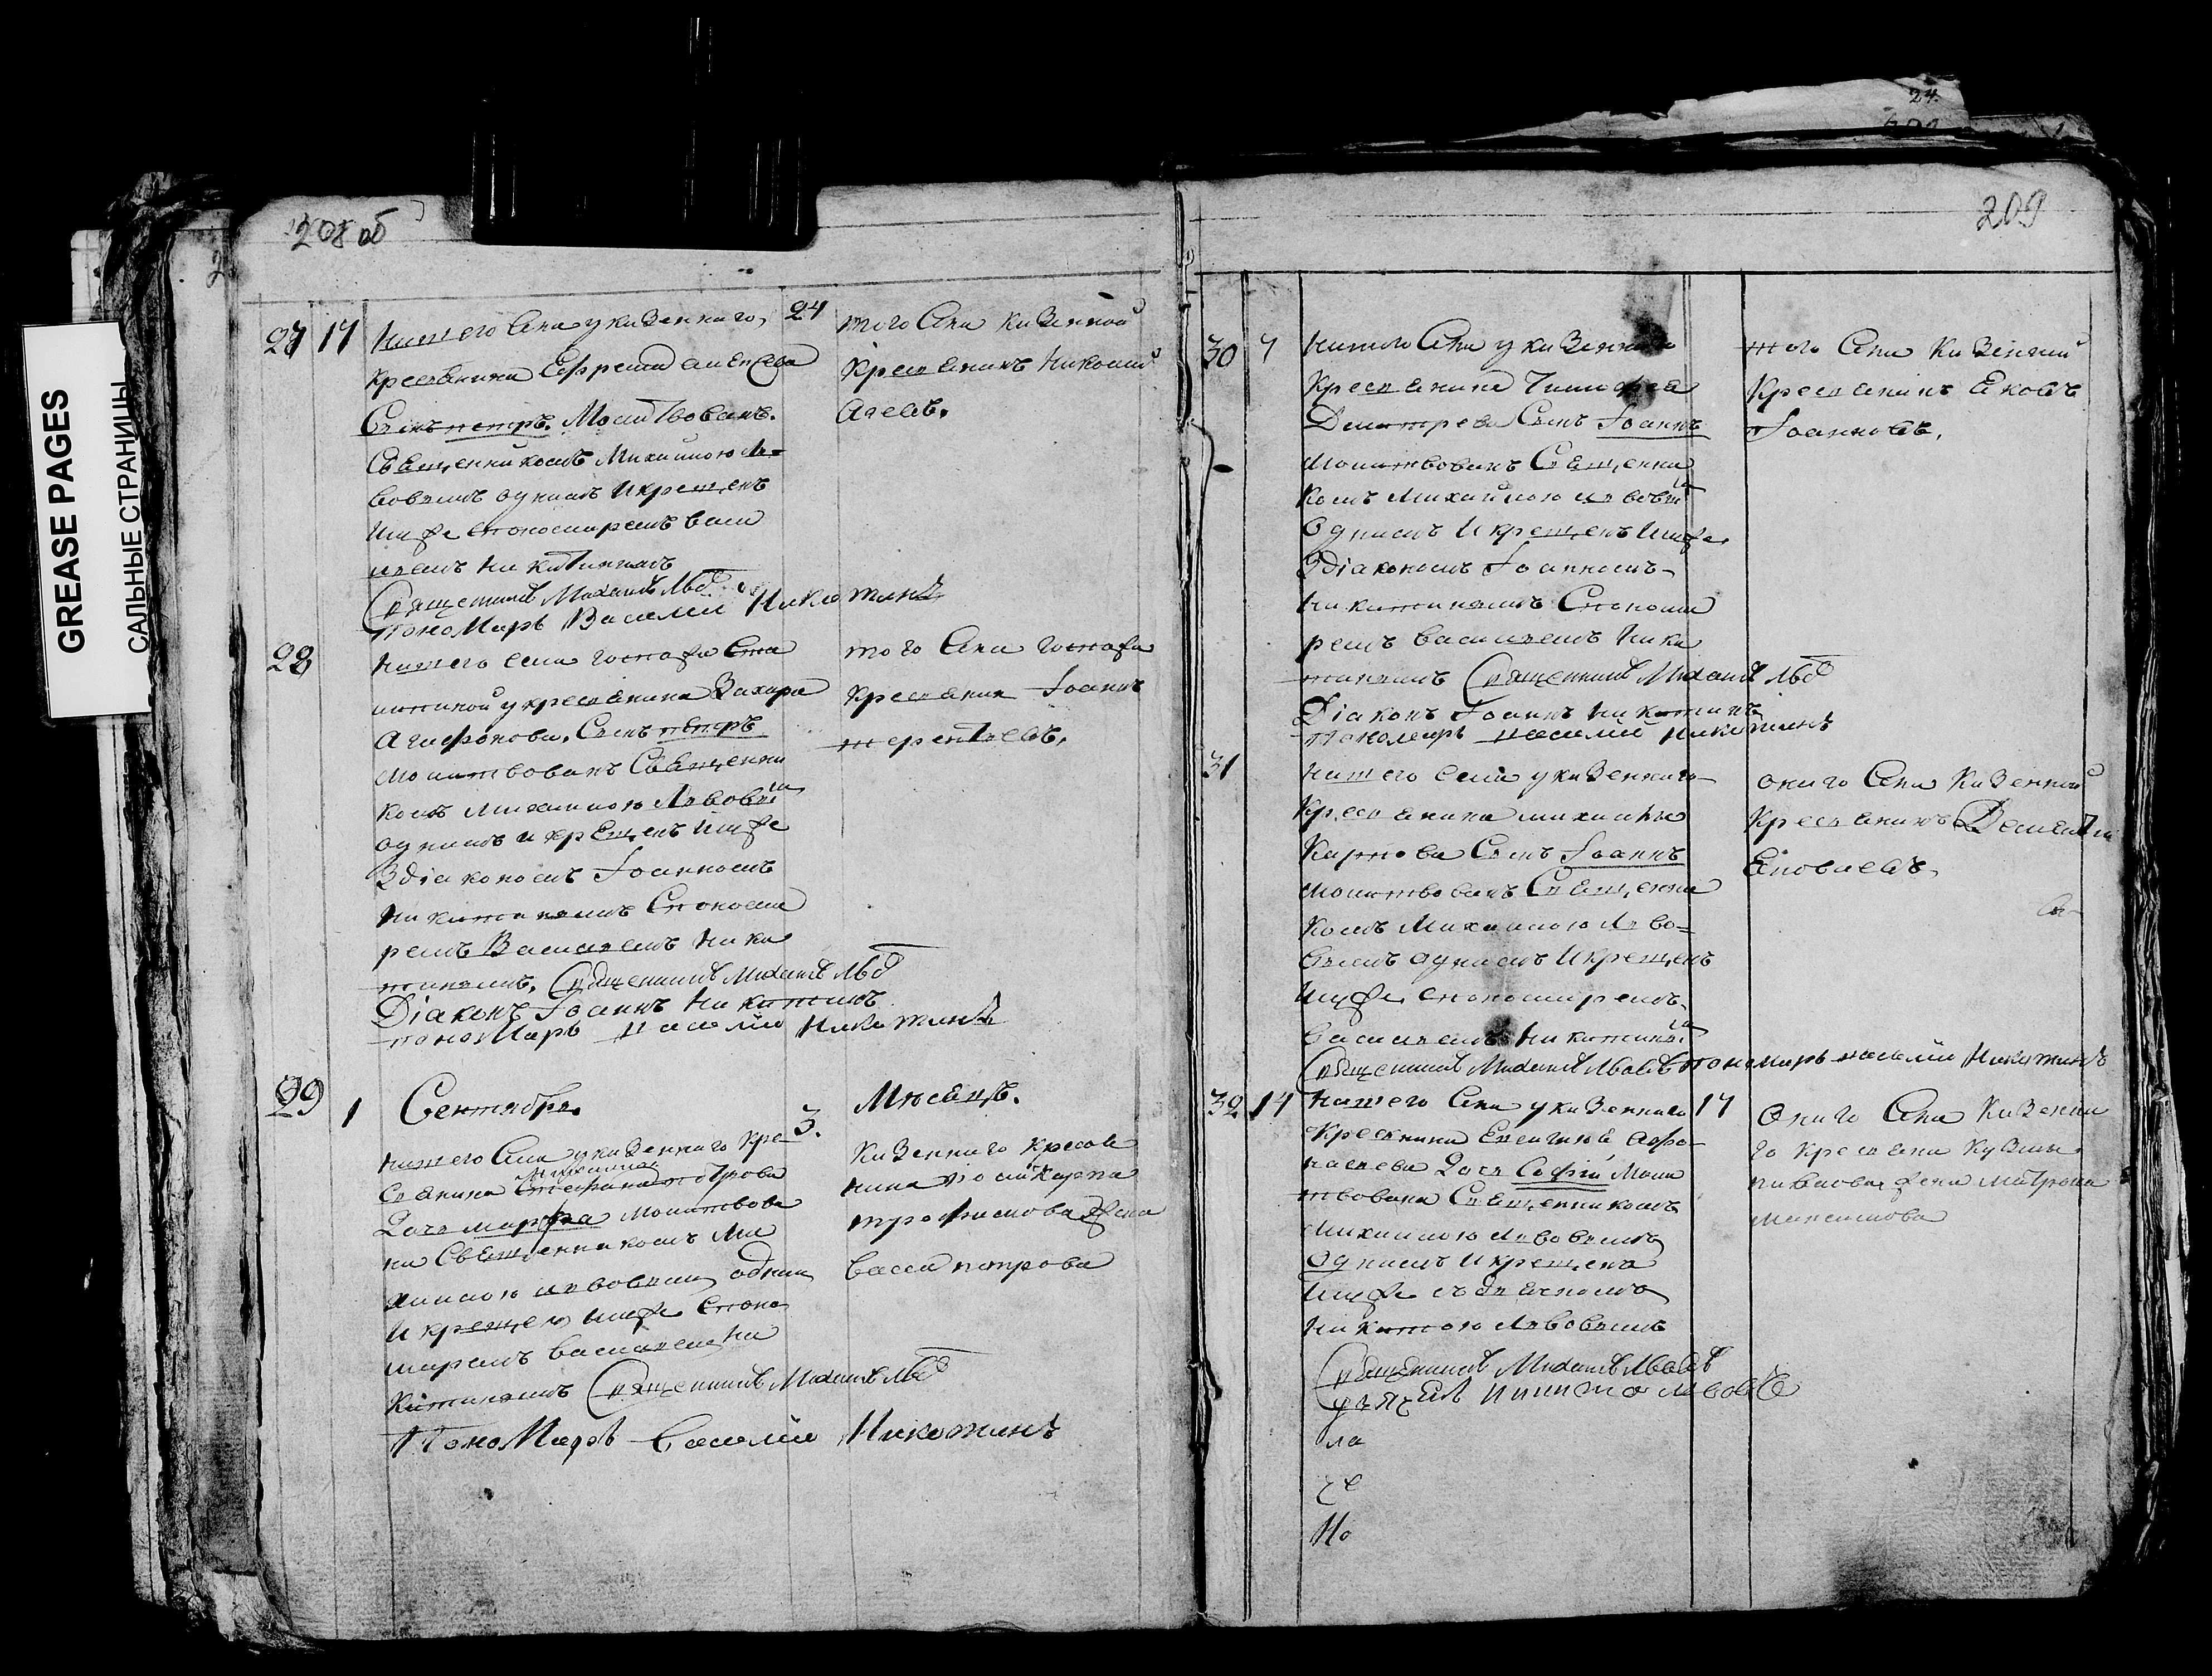 208 об
GREASE PAGES
САЛЬНЫЕ СТРАНИЦЫ
27 17 нашего села у казеннаго, 24
крестьянина Ефрема алексеева
Сынъ петръ. Молитвованъ.
Священникомъ Михаиломъ ль=
вовымъ однимъ И крещенъ
имже спономаремъ васи
лиемъ никитинымъ
Священникъ Михаилъ Льв
пономарь Василий Никитинъ
того Села казенной
крестьянинъ Николай
Агеевъ.
28
нашего села
у крестьянина Захара
Агафонова. Сынъ петръ
молитвованъ Священни
комъ михаиломъ Львовы
однимъ и крещенъ имже
Здіакономъ Іоанномъ
никитинымъ Спонома
ремъ Василиемъ ники
тинымъ. Священникъ Михаилъ Льв
Діаконъ Іоаннъ никитинъ
пономарь василий Никитинъ
того Села
крестьянин Іоаннъ
терентьевъ.
29 1 Сентябрь 3. Месяцъ.
нашего Села у казеннаго кре
стьянина петрова
Дочь марфа молитвова
на Священникомъ Ми
хаиломъ львовымъ одним
И крещена имже споно
маремъ василиемъ ни
китинымъ Священникъ Михаилъ Льв
Пономарь василий Никитинъ
казеннаго кресть
нина
трофимова жена
васса петрова
24.
209
30 7 нашего Села у казеннаго
крестьянина Тимофея
Дмитрева Сынъ Іоаннъ
молитвованъ Священни
комъ михаиломъ львовы
Однимъ И крещенъ имже
Здіакономъ Іоанномъ
никитинымъ Спонома
ремъ василиемъ ники
тинымъ Священникъ Михаилъ Льв
Діаконъ Іоаннъ никитинъ
пономарь василий никитинъ
того Села казенный
крестьянинъ Яковъ
Іоанновъ.
31
нашего села у казеннаго
крестьянина михаила
Карпова Сынъ Іоаннъ
молитвованъ Священни
комъ Михаиломъ Льво=
вымъ однимъ И крещенъ
имже спономаремъ
василиемъ никитины
Священникъ Михаилъ Львовъ пономарь василий Никитинъ
онаго Села казенной
крестьянинъ Дементий
Яковлевъ.
32 14 нашего Села у казеннаго 17
крестьянина Афо
насьева Дочь Софія Моли
твована Священникомъ
михаиломъ львовымъ
однимъ И крещена
имже съ дьячкомъ
никитою Львовымъ
Священникъ Михаилъ Львовъ
дьячекъ Никита Львовъ
ла
че
но
онаго Села казенна
го крестьяна кузмы
жена матрона
максимова